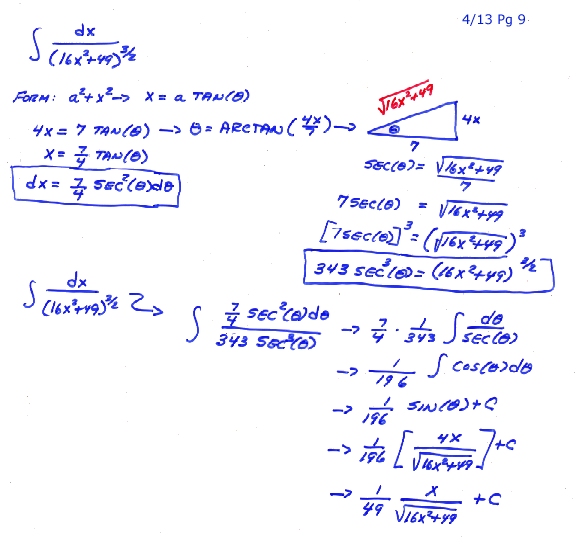 4/13 Pg 9
∫ dx / (16x²+49)^3/2
FORM: a²+x² → x = a TAN(θ)
4x = 7 TAN(θ) → θ = ARCTAN(4x/7) →
x = 7/4 TAN(θ)
dx = 7/4 SEC²(θ)dθ
√16x²+49
θ
4x
7
SEC(θ) = √16x²+49 / 7
7 SEC(θ) = √16x²+49
[7 SEC(θ)]³ = (√16x²+49)³
343 SEC³(θ) = (16x²+49)^3/2
∫ dx / (16x²+49)^3/2
∫ 7/4 SEC²(θ)dθ / 343 SEC³(θ) → 7/4 · 1/343 ∫ dθ / SEC(θ)
→ 1/196 ∫ COS(θ)dθ
→ 1/196 SIN(θ)+C
→ 1/196 [4x / √16x²+49] +C
→ 1/49 x / √16x²+49 +C